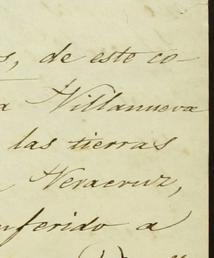 s, de este co-
a Villanueva
las tierras
Veracruz,
nferido a